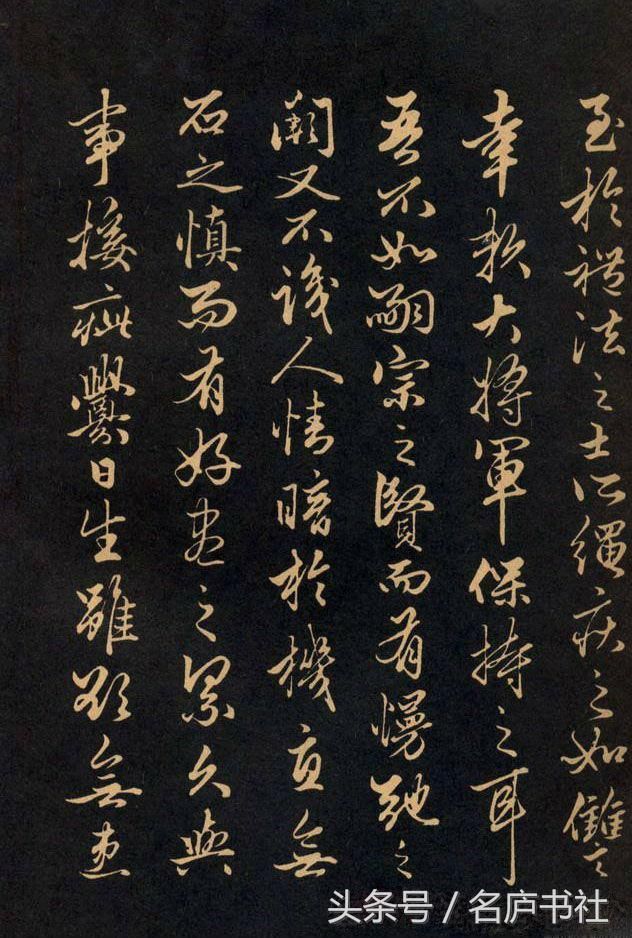 至於禮法之士所繩疾之如讐
幸賴大將軍保持之耳
吾不如嗣宗之賢而有慢弛之
闕又不識人情暗於機宜無
石之慎而有好盡之累久與
事接疵釁日生雖欲無患
头条号 / 名庐书社